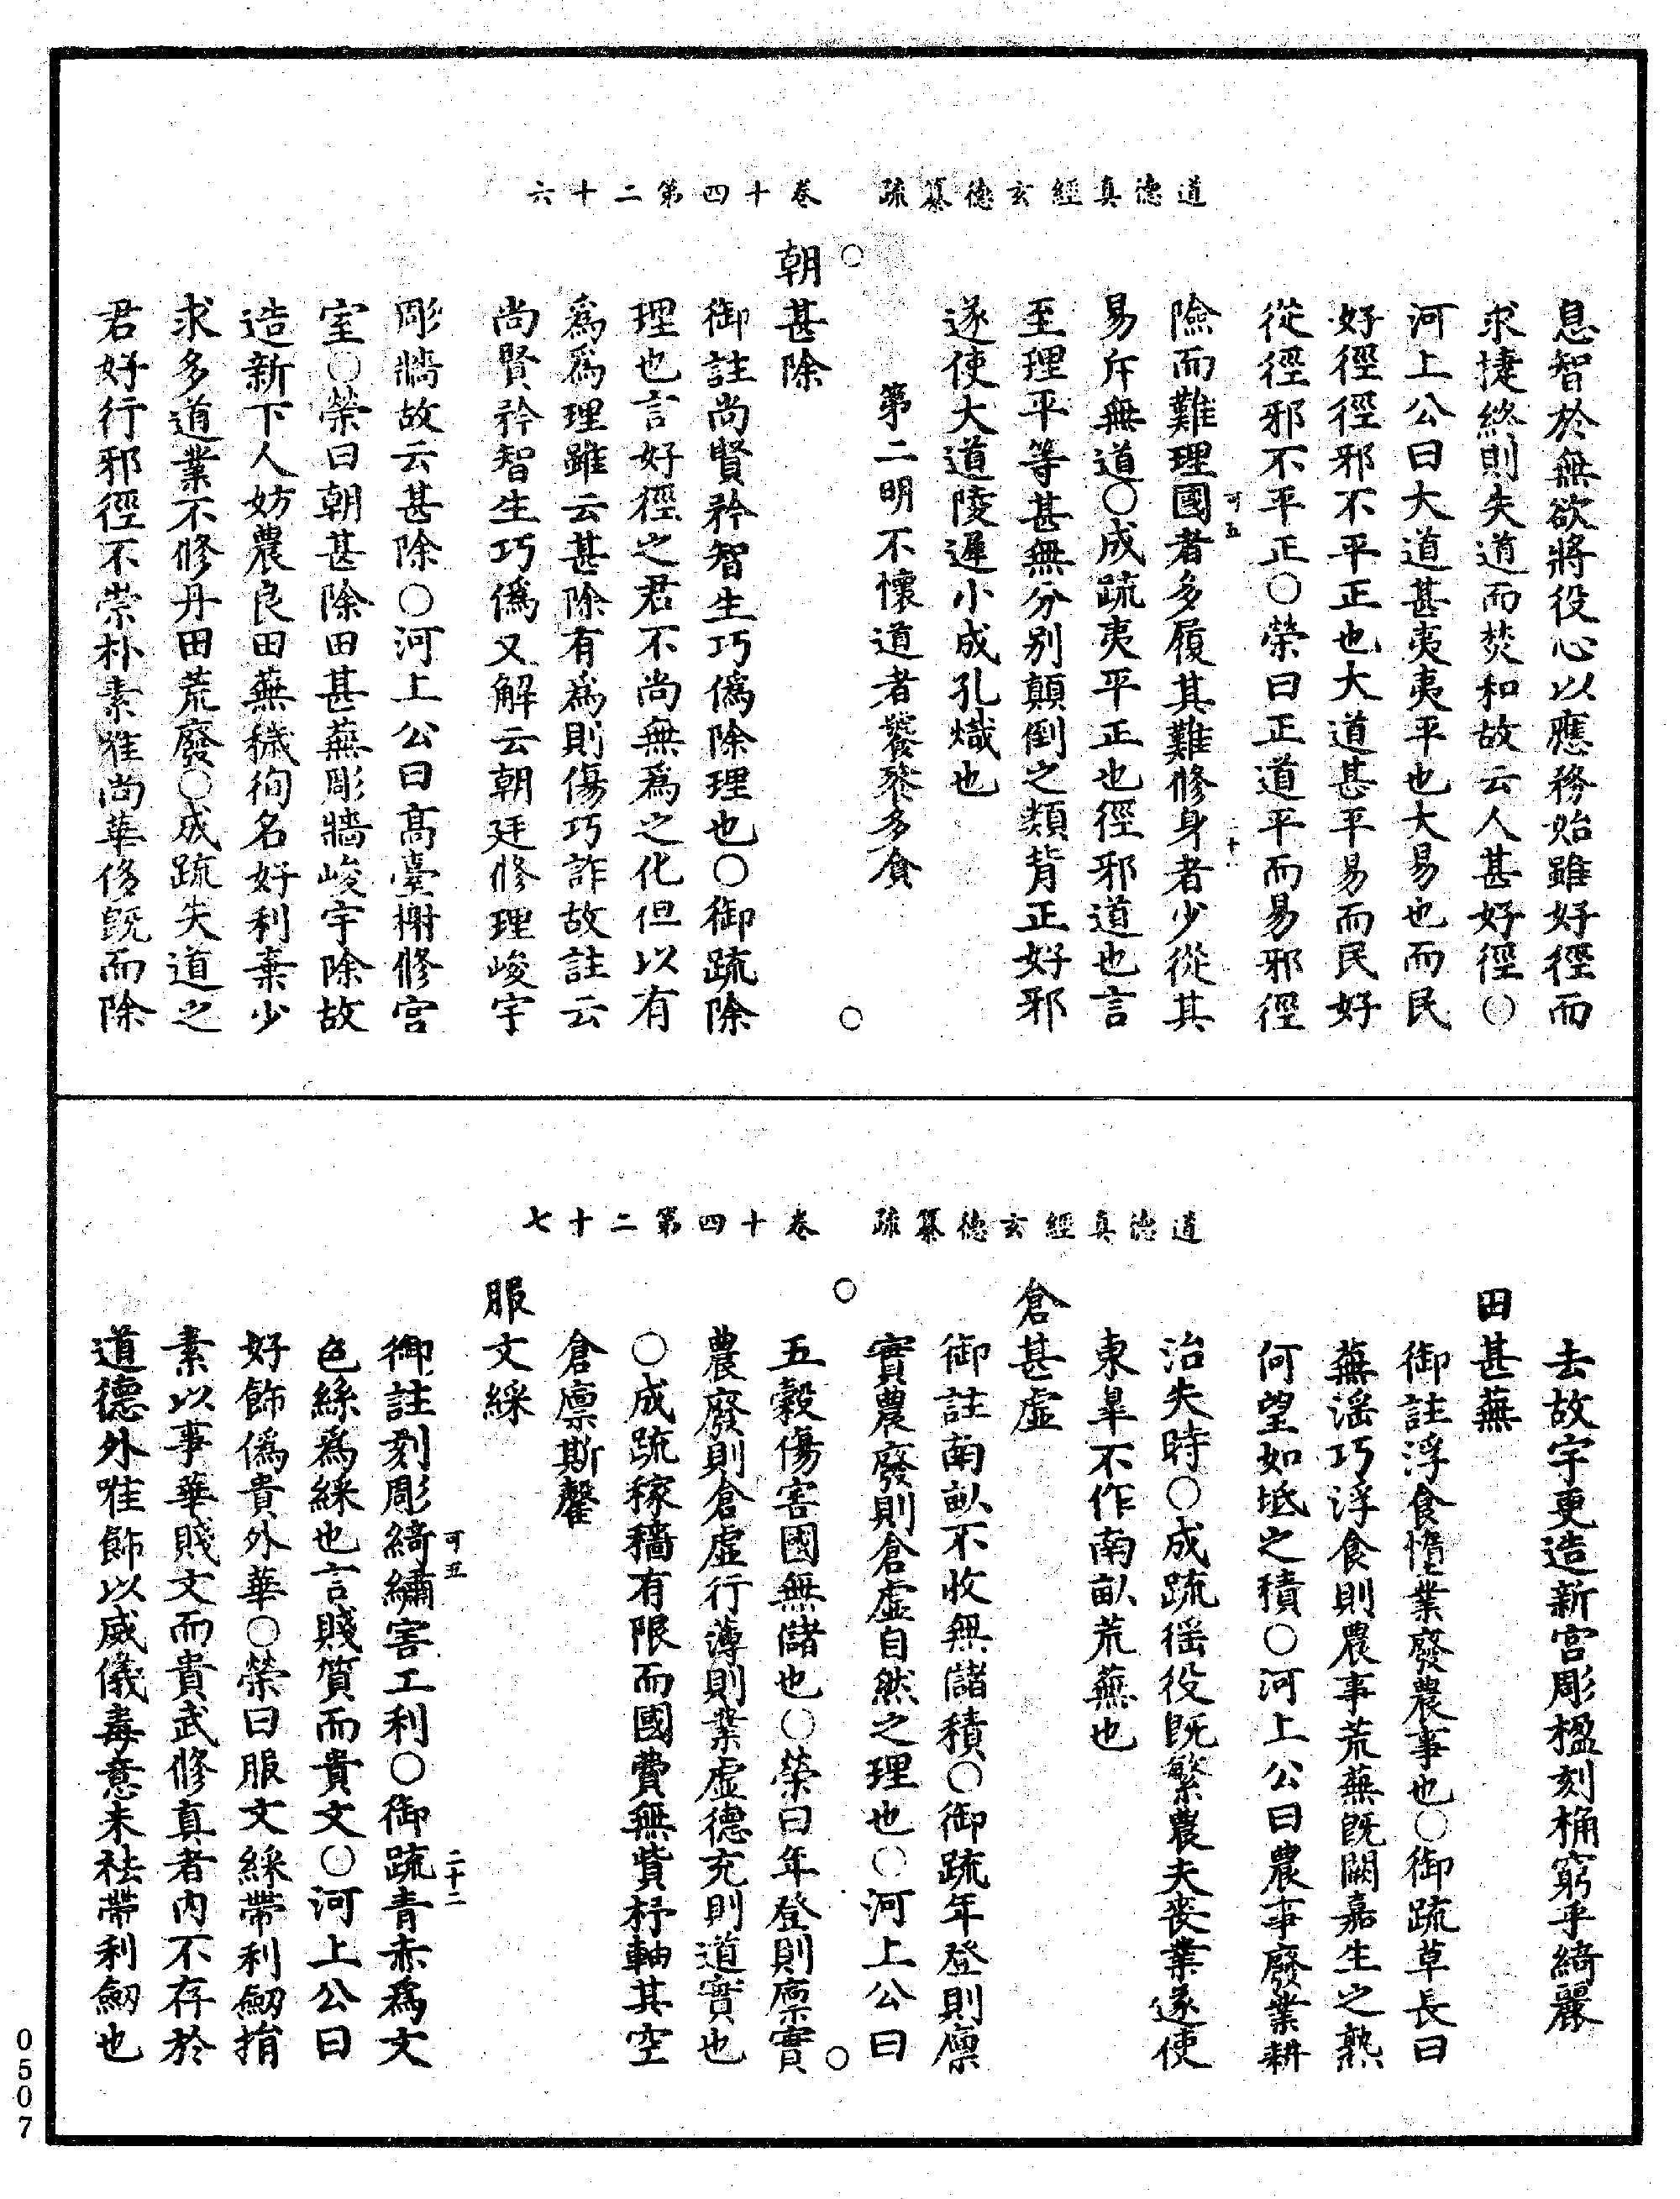 道德真經玄德纂疏　卷十四第二十六
息智於無欲將役心以應務貽雖好徑而
求捷終則失道而焚和故云人甚好徑○
河上公曰大道甚夷夷平也大易也而民
好徑徑邪不平正也大道甚平易而民好
從徑邪不平正○榮曰正道平而易邪徑
可五
十八
險而難理國者多履其難修身者少從其
易斥無道○成疏夷平正也徑邪道也言
至理平等甚無分别顛倒之類背正好邪
遂使大道陵遲小成孔熾也
第二明不懷道者饕餮多貪
○　○
朝甚除
御註尚賢矜智生巧僞除理也○御疏除
理也言好徑之君不尚無爲之化但以有
爲爲理雖云甚除有爲則傷巧詐故註云
尚賢矜智生巧僞又解云朝廷修理峻宇
彫牆故云甚除○河上公曰高臺榭修宫
室○榮曰朝甚除田甚蕪彫牆峻宇除故
造新下人妨農良田蕪穢徇名好利棄少
求多道業不修丹田荒廢○成疏失道之
君好行邪徑不崇朴素唯尚華侈旣而除
道德真經玄德纂疏　卷十四第二十七
去故宇更造新宫彫楹刻桷窮乎綺麗
田甚蕪
御註浮食惰業廢農事也○御疏草長曰
蕪滛巧浮食則農事荒蕪旣闕嘉生之熟
何望如坻之積○河上公曰農事廢業耕
治失時○成疏徭役旣繁農夫喪業遂使
東皐不作南畝荒蕪也
倉甚虚
御註南畝不收無儲積○御疏年登則廪
實農廢則倉虚自然之理也○河上公曰
○　○
五穀傷害國無儲也○榮曰年登則廪實
農廢則倉虚行薄則業虚德充則道實也
○成疏稼穡有限而國費無貲杼軸其空
倉廪斯罄
服文綵
可五
二十二
御註刻彫綺繡害工利○御疏青赤爲文
色絲爲綵也言賤質而貴文○河上公曰
好飾僞貴外華○榮曰服文綵帶利劒捐
素以事華賤文而貴武修真者内不存於
道德外唯飾以威儀毒意未袪帶利劒也
0507